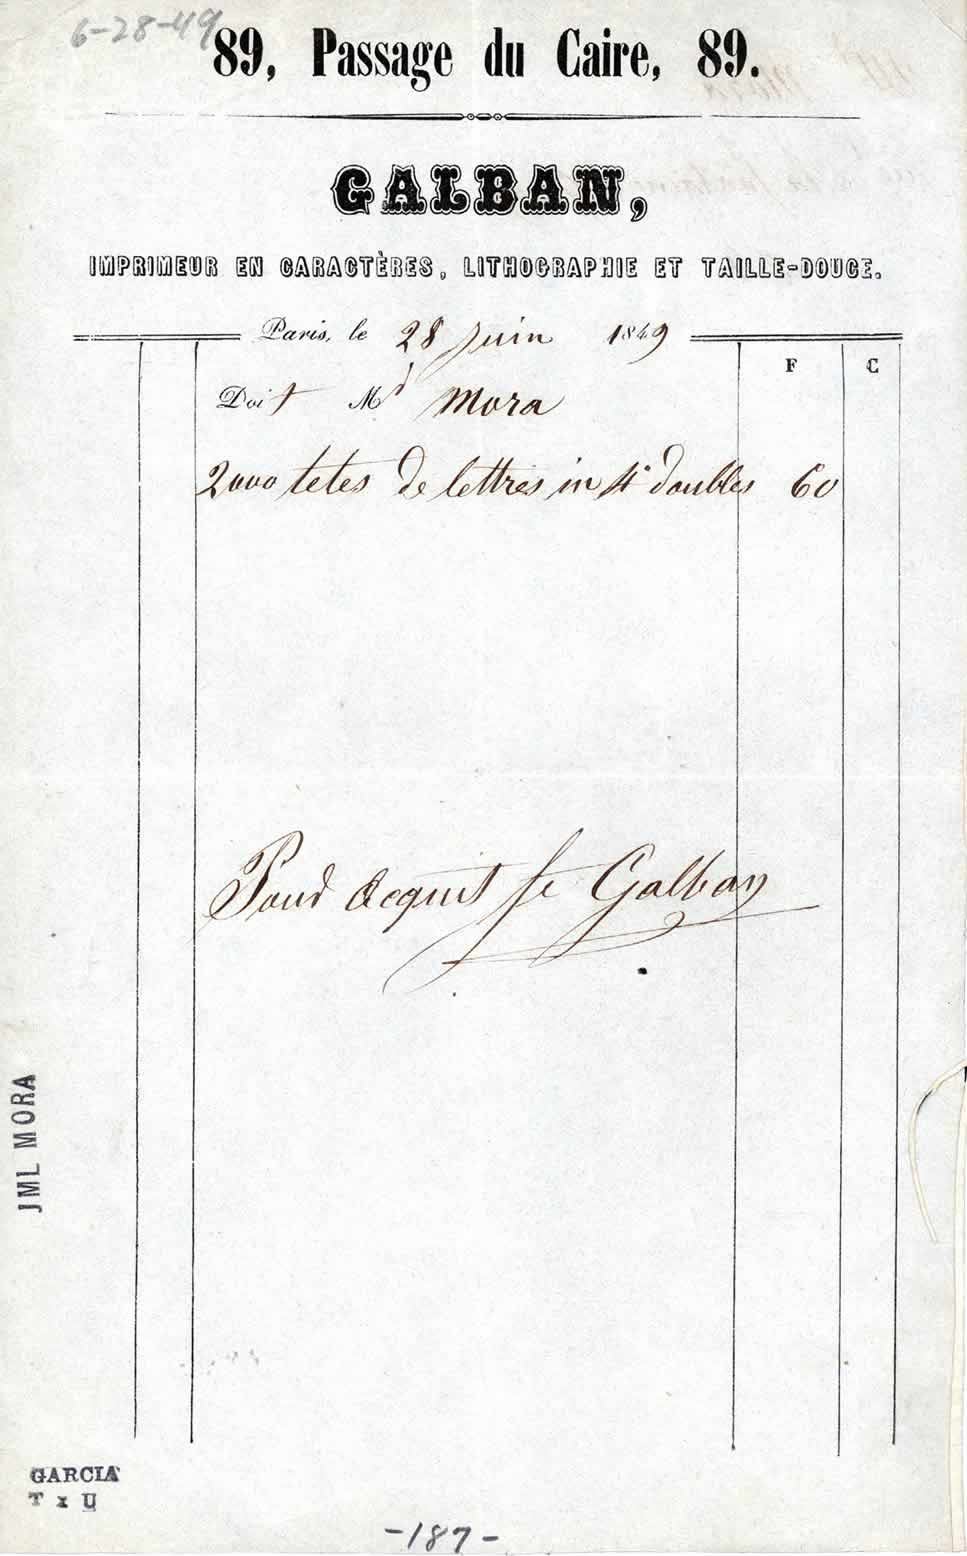 6-28-49
89, Passage du Caire, 89.
GALBAN,
IMPRIMEUR EN CARACTÈRES, LITHOGRAPHIE ET TAILLE-DOUCE.
Paris, le 28 Juin 1849
F C
Doit Md Mora
2000 tetes de lettres in 4° doubles 60
Pour acquit Galban
JML MORA
GARCIA
T x U
-187-